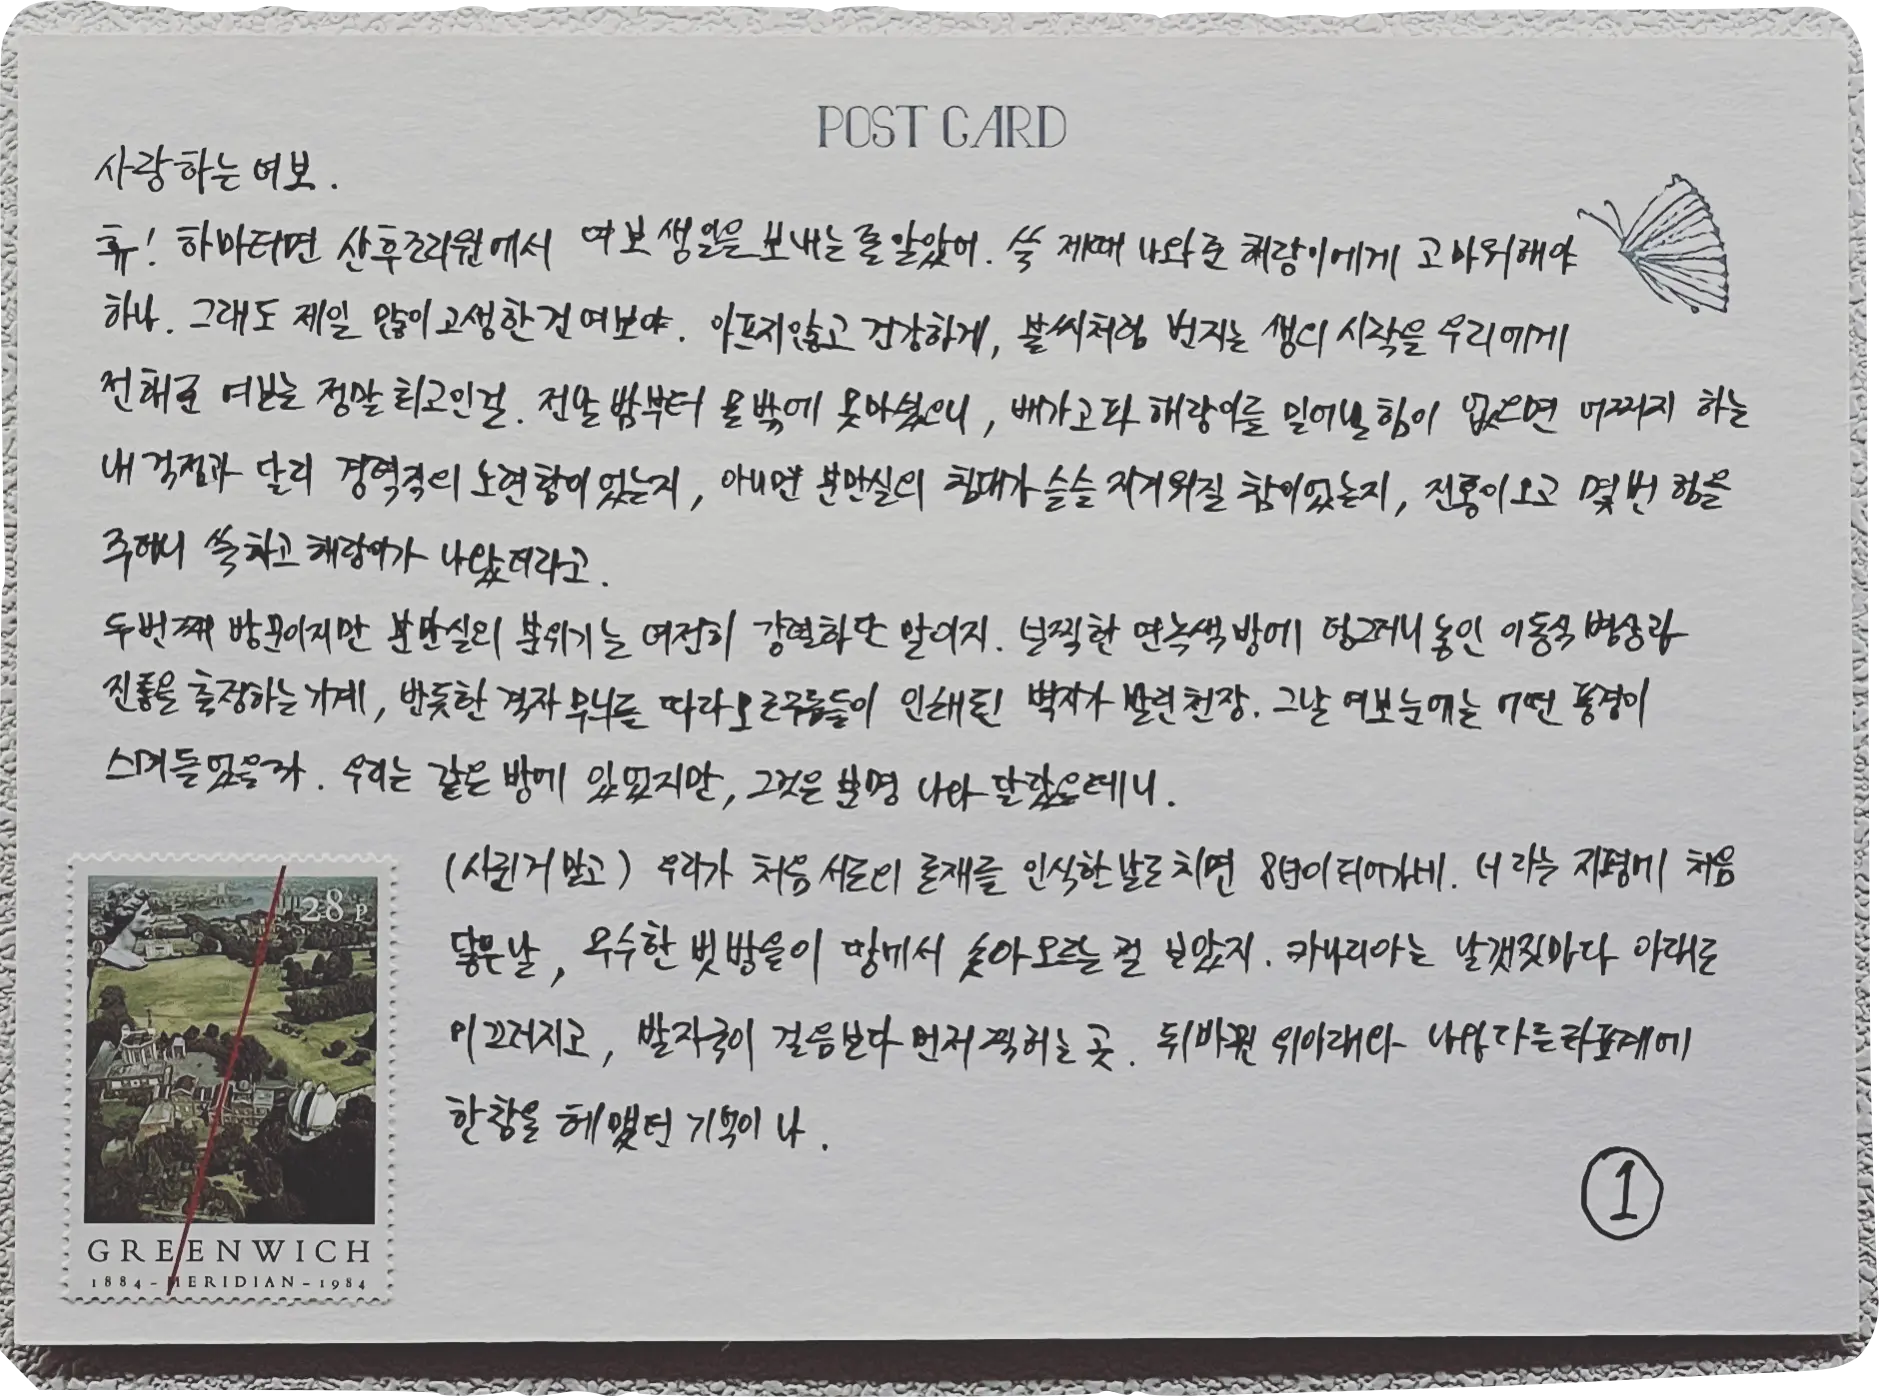 POST CARD
사랑하는 여보.
휴! 하마터면 산후조리원에서 여보 생일을 보내는 줄 알았어. 쏙 제때 나와준 해랑이에게 고마워해야
하나. 그래도 제일 많이 고생한 건 여보야. 아프지않고 건강하게, 불씨처럼 번지는 생의 시작을 우리에게
전해준 여보는 정말 최고인걸. 전날 밤부터 물밖에 못마셨으니, 배가고파 해랑이를 밀어낼 힘이 없으면 어쩌지 하는
내 걱정과 달리 경력직의 노련함이었는지, 아니면 분만실의 침대가 슬슬 지겨워질 참이었는지, 진통이오고 몇 번 힘을
주더니 쏙 하고 해랑이가 나왔더라고.
두번째 방문이지만 분만실의 분위기는 여전히 강렬하단 말이지. 널찍한 연녹색 방에 덩그러니 놓인 이동식 병상과
진통을 측정하는 기계, 반듯한 격자무늬를 따라 오 인쇄된 벽지가 발린 천장. 그날 여보 눈에는 어떤 풍경이
스며들었을까. 우리는 같은 방에 있었지만, 그것은 분명 나와 달랐을테니.
(사귄거 말고) 우리가 처음 서로의 존재를 인식한 날로 치면 8년이 되어가네. 너라는 지평에 처음
닿은 날, 무수한 빗방울이 땅에서 솟아오르는 걸 보았지. 카나리아는 날갯짓마다 아래로
미끄러지고, 발자국이 걸음보다 먼저 찍히는 곳. 뒤바뀐 위아래와 나와 다른 좌표계에
한참을 헤맸던 기억이 나.
28 P
GREENWICH
1884-MERIDIAN-1984
1